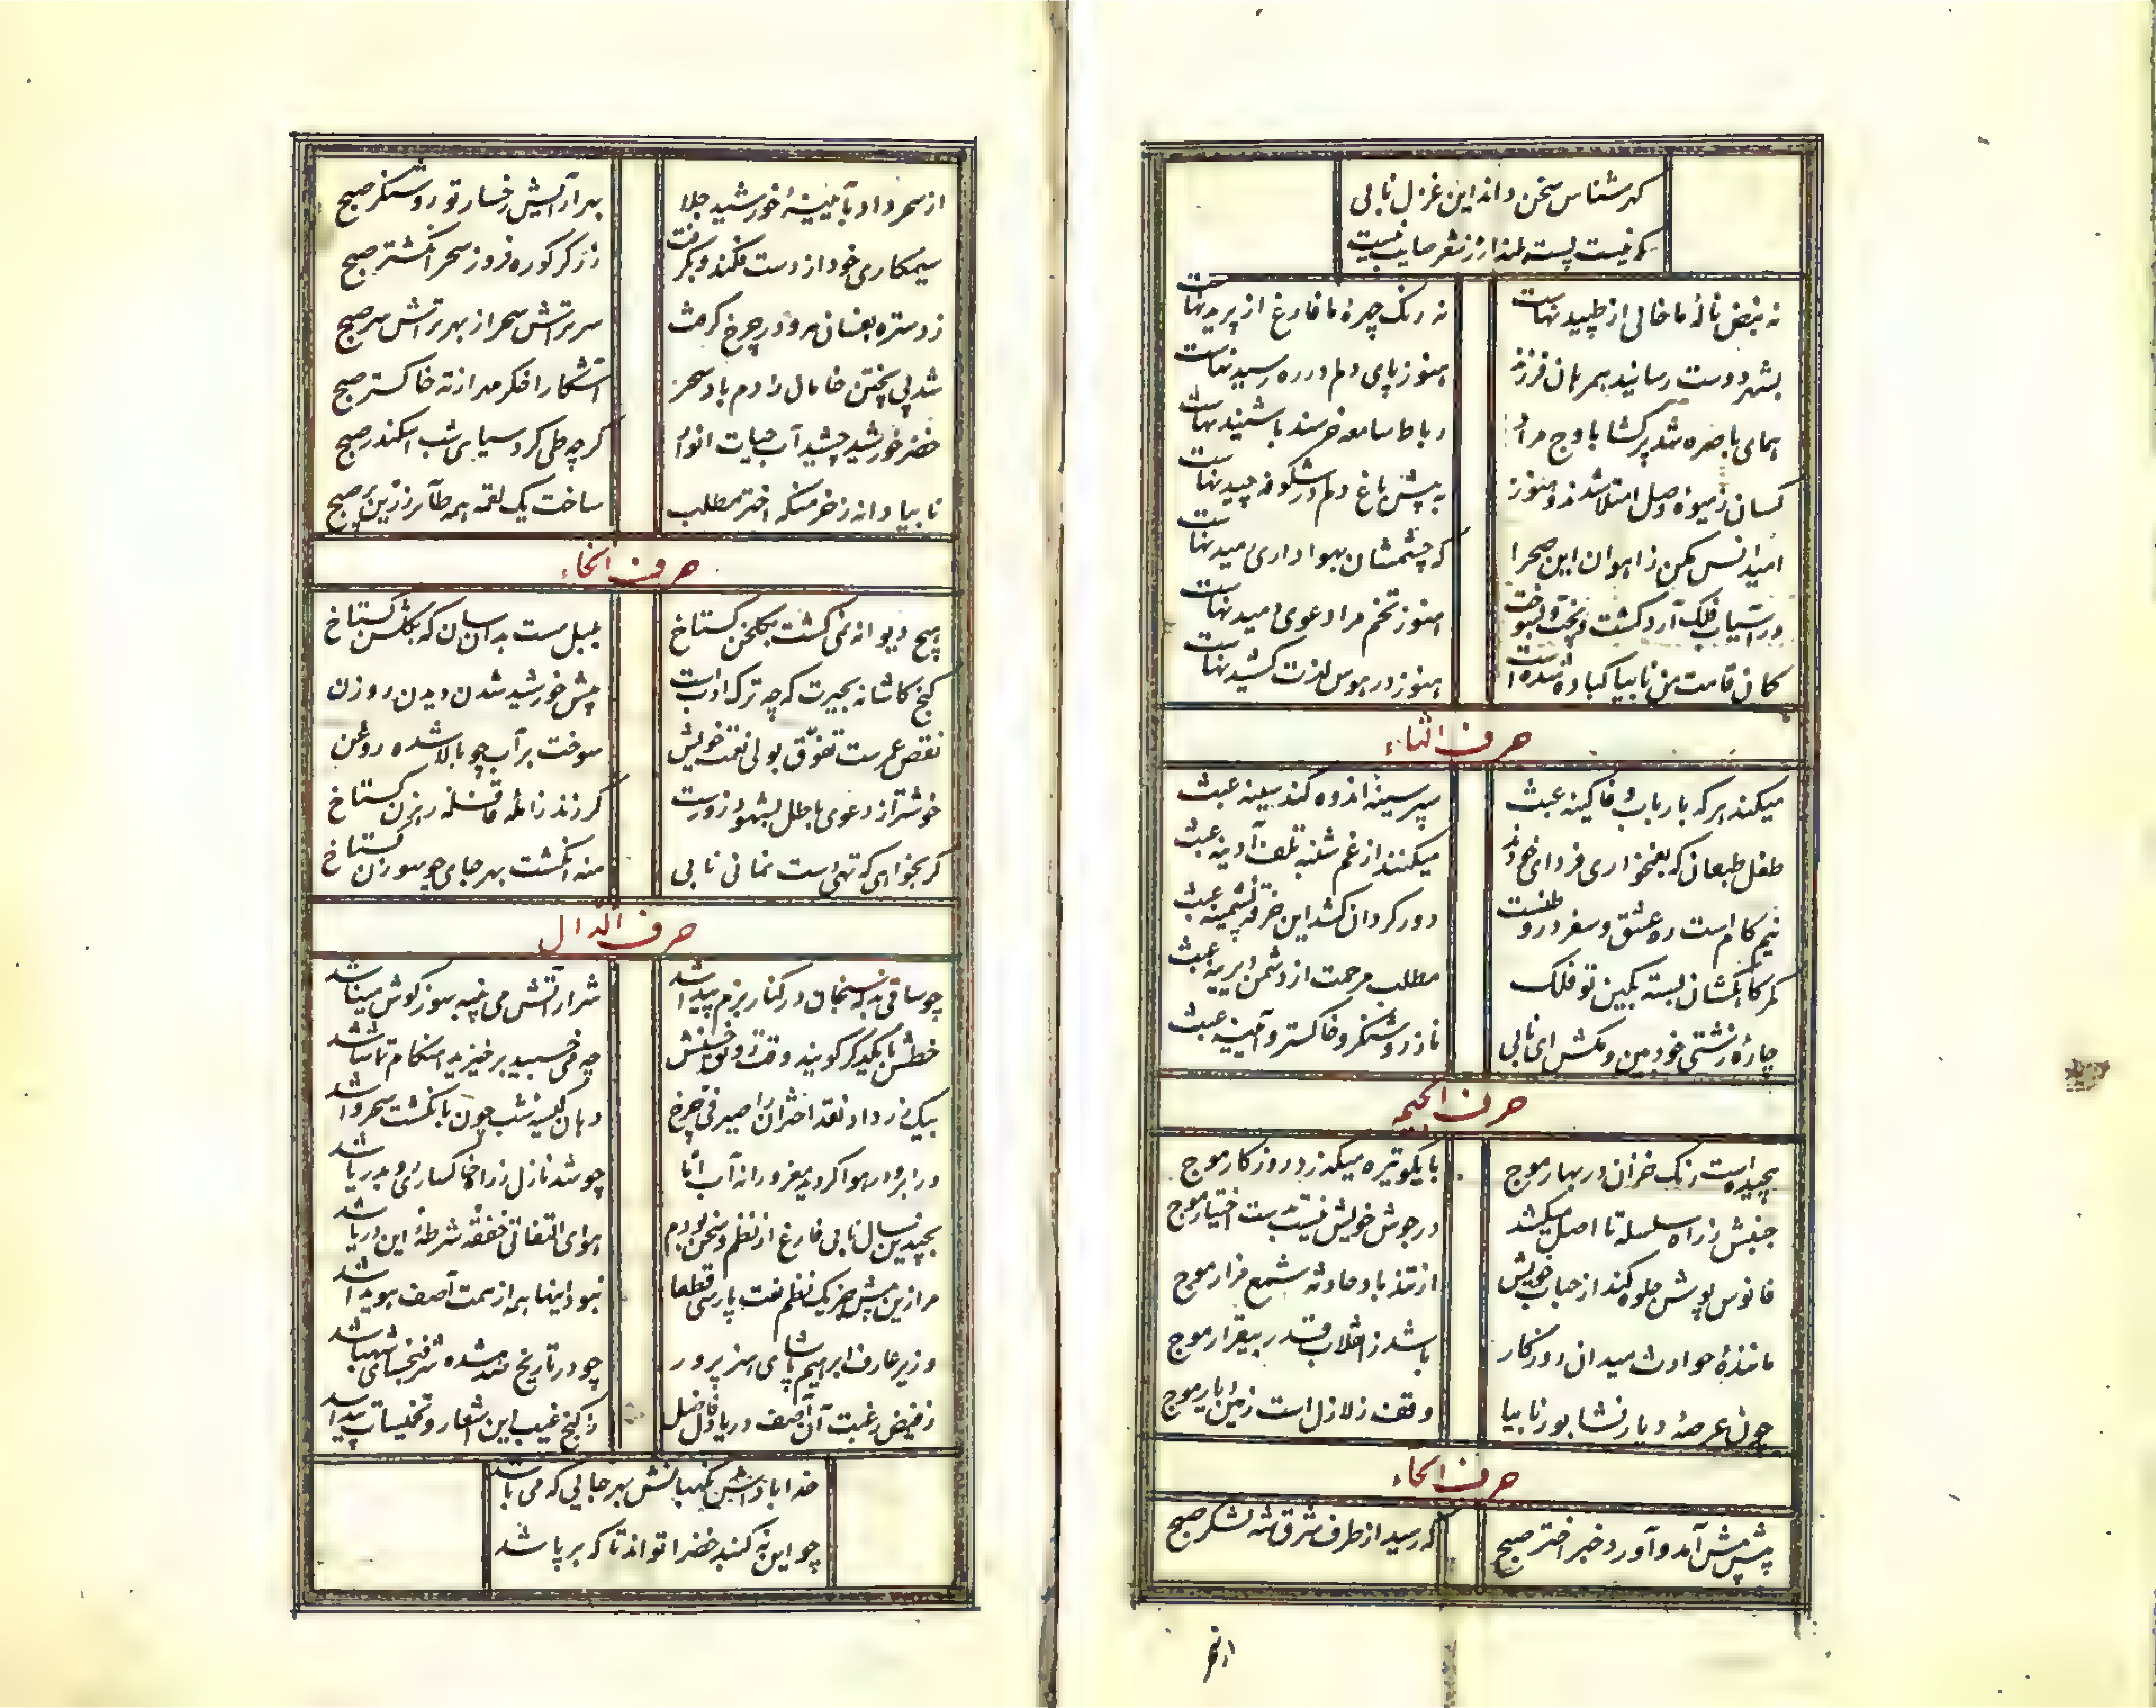 گهر شناس سخن داند این غزل نابی
که نیست پست بلند از شعر صایب نیست
نه نبض نالهٔ ما خالی از طپیدنهاست
نه رنگ چهرهٔ ما فارغ از پریدنهاست
بشهر دوست رسانید همرهان
هنوز پای دلم در ره رسیدنهاست
همای باصره شد پرکشا باوج مراد
رباط سامعه خرسند با شنیدنهاست
کسان ز میوهٔ وصل امتلا شدند و هنوز
به پیش باغ دلم در شکوفه چیدنهاست
امید انس مکن ز آهوان این صحرا
که چشمشان بهواداری رمیدنهاست
در آسیاب فلک آرد گشت و پخت
هنوز تخم مرا دعوی دمیدنهاست
کمان قامت من نابیا کباده شده است
هنوز در هوس لذت کشیدنهاست
حرف الثاء
میکند هر که بارباب وفا کینه عبث
سپر سینه اندوه کند سینه عبث
طفل طبعان که بغمخواری فردای خودند
میکنند از غم شنبه تلف آدینه عبث
نیم کام است ره عشق و سفر در وطنست
دور گردان کشد این خرقهٔ پشمینه عبث
کمر کاهکشان بسته بکین تو فلک
مطلب مرحمت از دشمن دیرینه عبث
چارهٔ زشتی خود بین و مکش ای نابی
ناز روشنگر و خاکستر و آیینه عبث
حرف الجیم
پیچیده است رنگ خزان در بهار موج
با یکوتیره میگذرد روزگار موج
جنبش ز راه سلسله تا اصل میکشد
در جوش خویش نیست بدست اختیار موج
فانوس پوش جلوه کند از حباب خویش
از تند باد حادثه شمع مزار موج
مانندهٔ حوادث میدان روزگار
باشد ز انقلاب قدر بیقرار موج
چون عرصهٔ دیار نشابور نابیا
وقف زلازل است زمین دیار موج
حرف الحاء
پیش پیش آمد و آورد خبر اختر صبح
که رسید از طرف شرق شه لشکر صبح
از سحر
از سحر داد بآیینهٔ خورشید جلا
بهر آرایش رخسار تو روشنگر صبح
سیمکاری خود از دست فکند و بگرفت
زرگر کوره فروز سحر انگشتر صبح
ز دستره بفسان مه و در چرخ گرفت
سربتراش سحر از بهر تراش سر صبح
شد پی پختن خامان را دم باد سحر
آشکارا فکر مهر از ته خاکستر صبح
خضر خورشید چشید آب حیات انوار
گرچه طی کرد سیاهی شب اسکندر صبح
نابیا دانه ز خرمنکه اختر مطلب
ساخت یک لقمه همه طائر زرین پر صبح
حرف الخاء
هیچ دیوانه نمی گشت بگلخن گستاخ
بلبل مست بدانسان که بگلشن گستاخ
کنج کاشانه بحیرت که چه ترک ادب است
پیش خورشید شدن دیدن روزن
نقص عمرست تفوق بولی نعمت خویش
سوخت بر آب چو بالا شده روغن
خوشتر از دعوی باطل بشهود زورست
گر زند ز افلهٔ قافله رهزن گستاخ
گر بخواهی که تهی دست نمانی نابی
منه انگشت بهر جای چو سوزن گستاخ
حرف الدال
چو ساقی در کنار بزم پیدا شد
شرار آتش می پنبه سوز گوش مینا شد
خطش با یکدیگر گویند وقت
چه می خسپید برخیزید هنگام تماشا شد
بیک زر داد نقد اختران را صیرفی چرخ
دهان کیسهٔ شب چون بانگشت سحر وا شد
در ابر و در هوا گردید مغرورانه آب اما
چو شد نازل ز راه خاکساری رو بدریا شد
بچندین سال نابی فارغ از نظم و سخن بودم
هوای التفاتی خفقه شرطهٔ این دریا شد
مرا زین پیش جز یک نظم نعت پارسی قطعا
نبود اینها همه از همت آصف هویدا شد
وزیر عارف ابراهیم پاشای هنر پرور
چو در تاریخ شده
ز فیض رغبت آن آصف دریا دل فاضل
ز کنج غیب این اشعار و تخمیسات پیدا شد
خدا بادا نگهبانش بهر جایی که می باشد
چو این نه گنبد خضرا تواند تا که بر پا شد